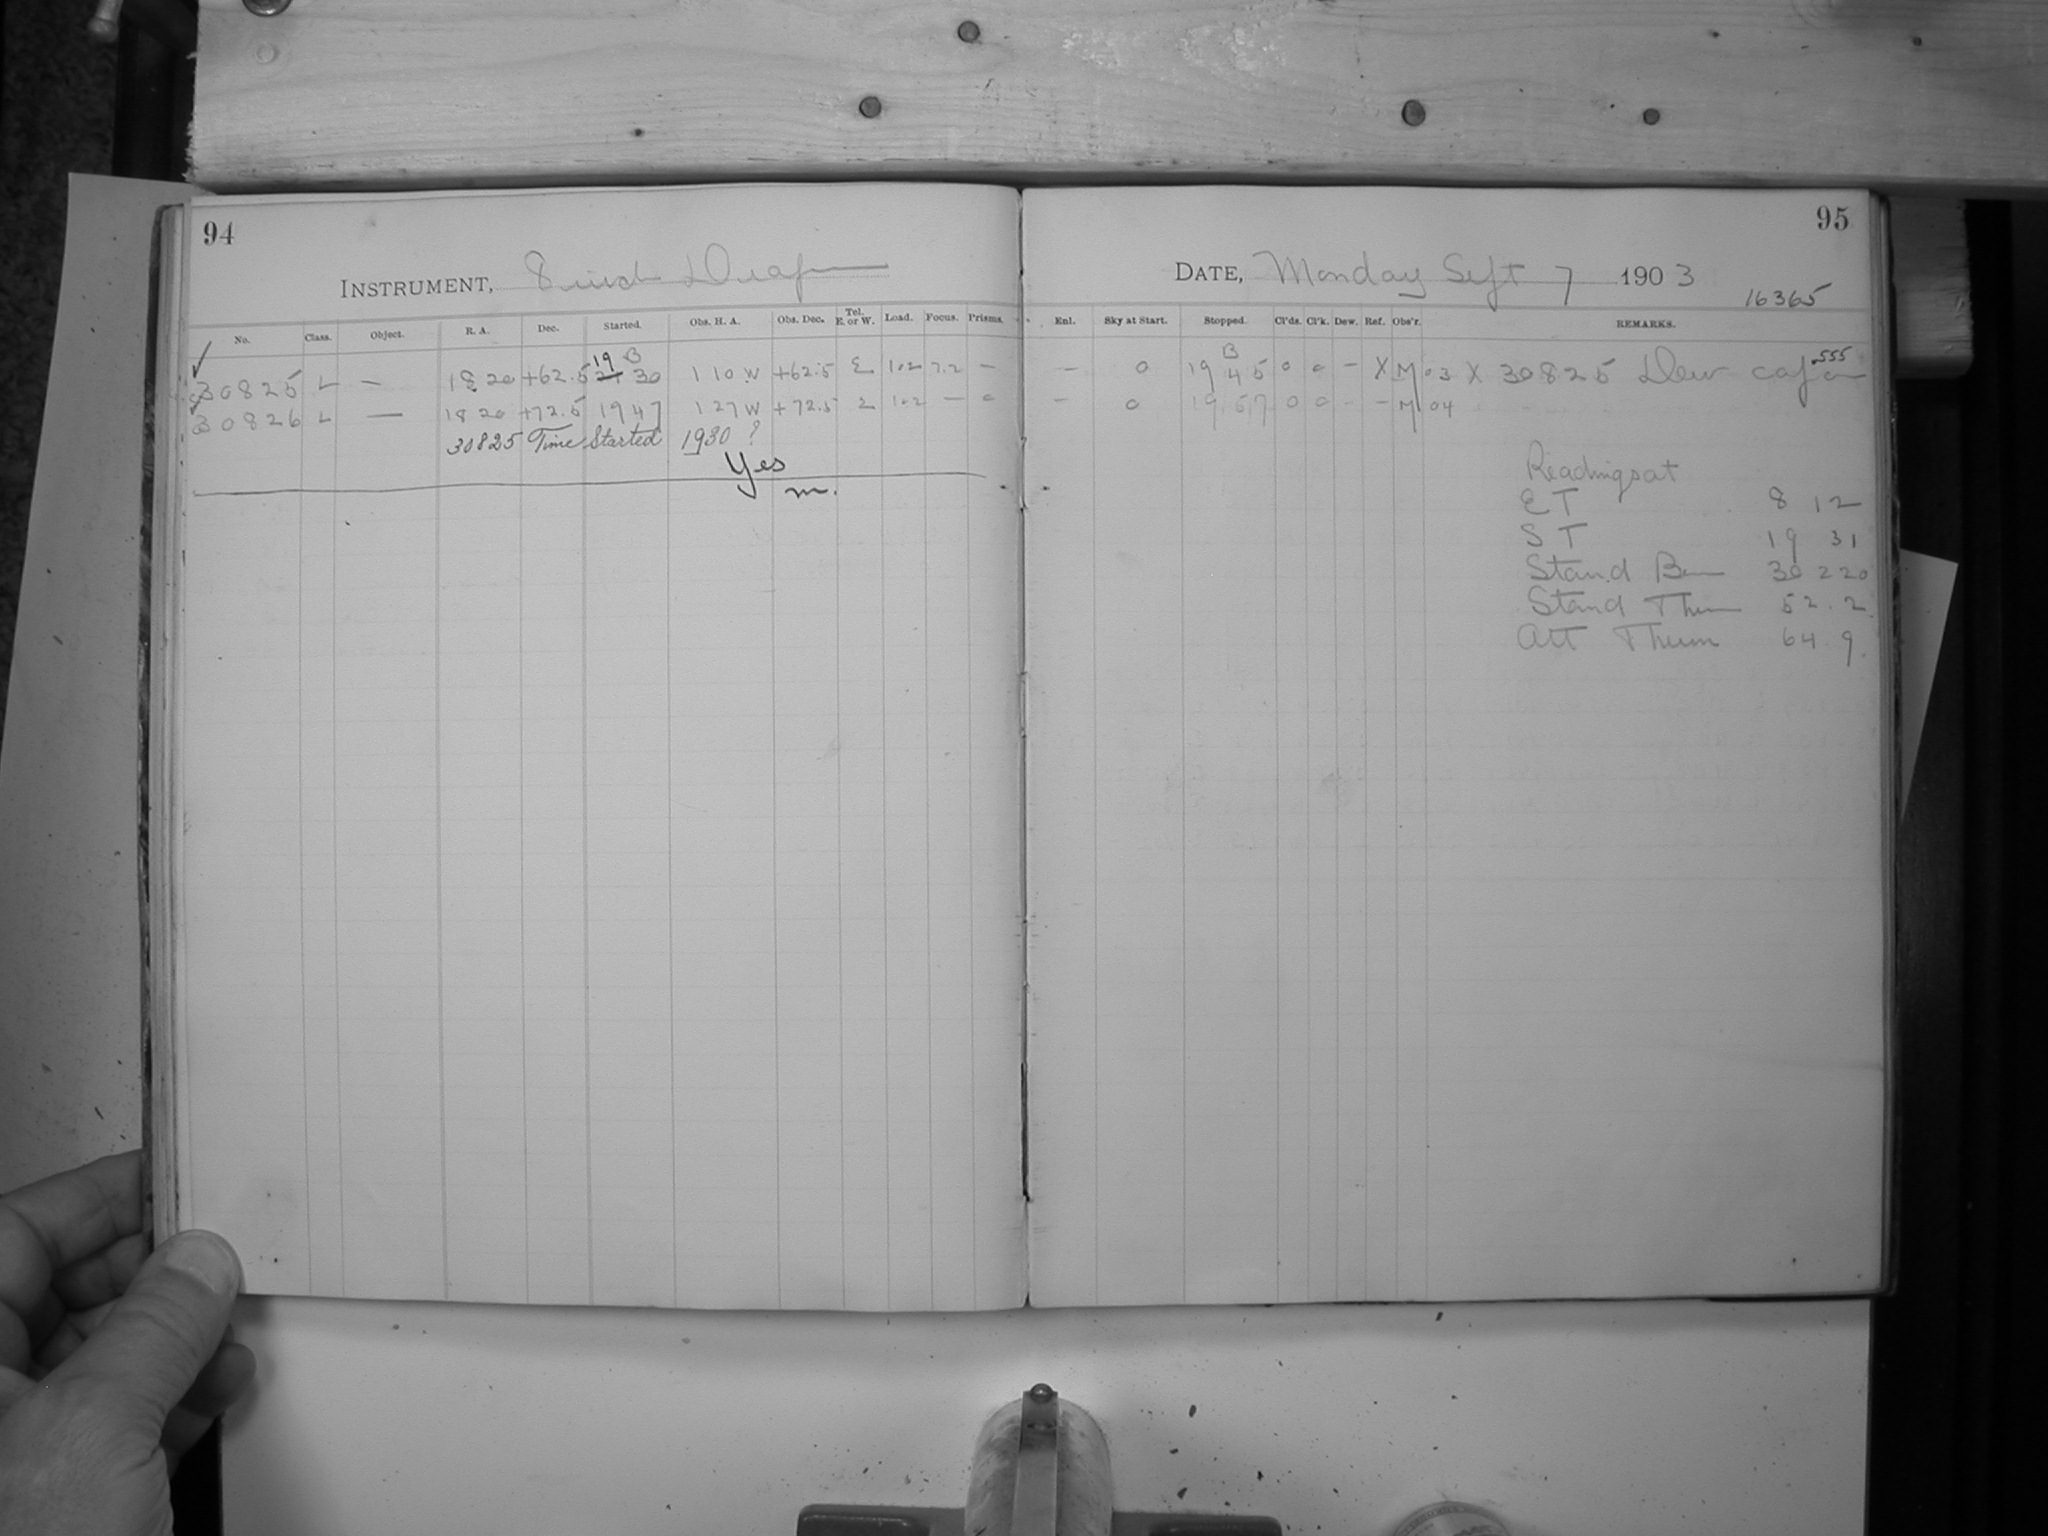 94
INSTRUMENT, 8 inch Draper
No. Class. Object. R. A. Dec. Started. Obs. H. A. Obs. Dec. Tel. E. or W. Load. Focus. Prisms.
19 B
30825 L — 18 20 +62.5 21 30 1 10 W +62.5 E 102 7.2 —
30826 L — 18 20 +72.5 19 47 1 27 W +72.5 E 102 — 0
30825 Time Started 1930 ?
Yes
m.
95
DATE, Monday Sept 7 1903
16365
Enl. Sky at Start. Stopped. Cl'ds. Cl'k. Dew. Ref. Obs'r. REMARKS.
B
555
— 0 19 45 0 0 — X M 03 X 30825 Dew cap on
— 0 19 57 0 0 — — M 04
Readings at
E T 8 12
S T 19 31
Stand Bar 30 220
Stand Therm 52.2
Att Therm 64.9